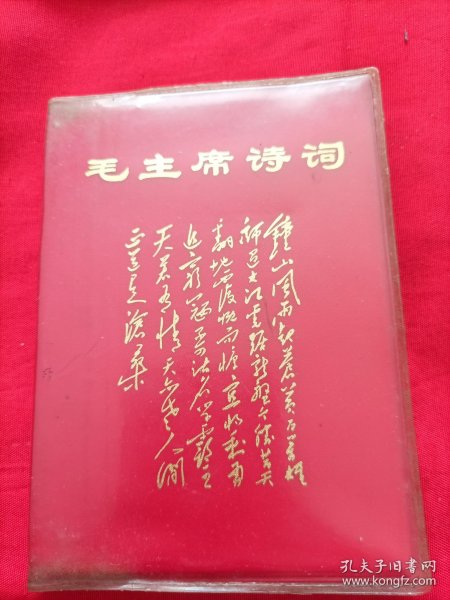 毛主席诗词
鐘山風雨起蒼黄百萬雄
師過大江虎踞龍盤今勝昔天
翻地覆慨而慷宜將剩勇
追窮寇不可沽名學霸王
天若有情天亦老人間
正道是滄桑
孔夫子旧书网
www.kongfz.com